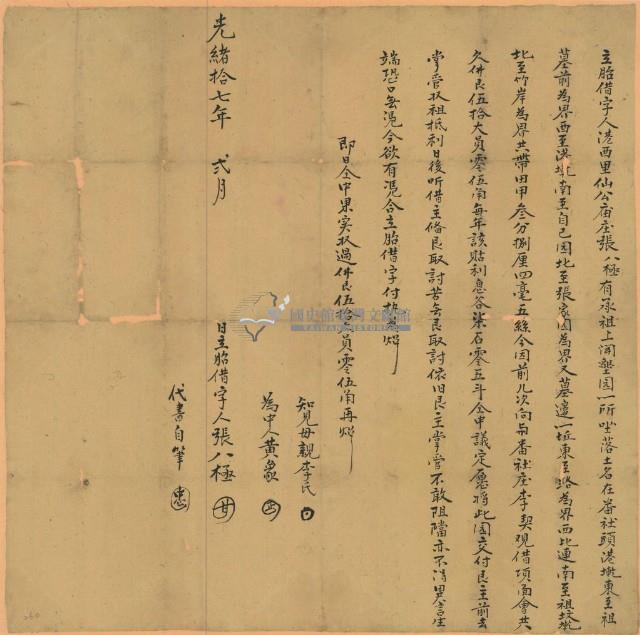 立胎借字人港西里仙公庙庄張八極有承祖上開墾園一所坐落土名在番社頭港墘東至祖
墓前為界西至港墘南至自己園北至張家園為界又墓邊一坵東至路為界西北連南至祖坟墘
北至竹岸為界共帶田甲叁分捌厘四毫五絲今因前几次向与番社庄李契观借項面會共
欠佛艮伍拾大員零伍角每年該貼利息谷柒石零五斗仝中議定愿將此園交付艮主前去
掌管收租抵利日後听借主備艮取討苦無艮取討依旧艮主掌管不敢阻擋亦不滋異言生
端恐口無憑今欲有憑合立胎借字付執炤
即日仝中果实收過佛艮伍拾大員零伍角再炤
知見母親李氏
為中人黃
光緒拾七年 弍月 日立胎借字人張八極
代書自筆
國史館臺灣文獻館
TAIWAN HISTORICA